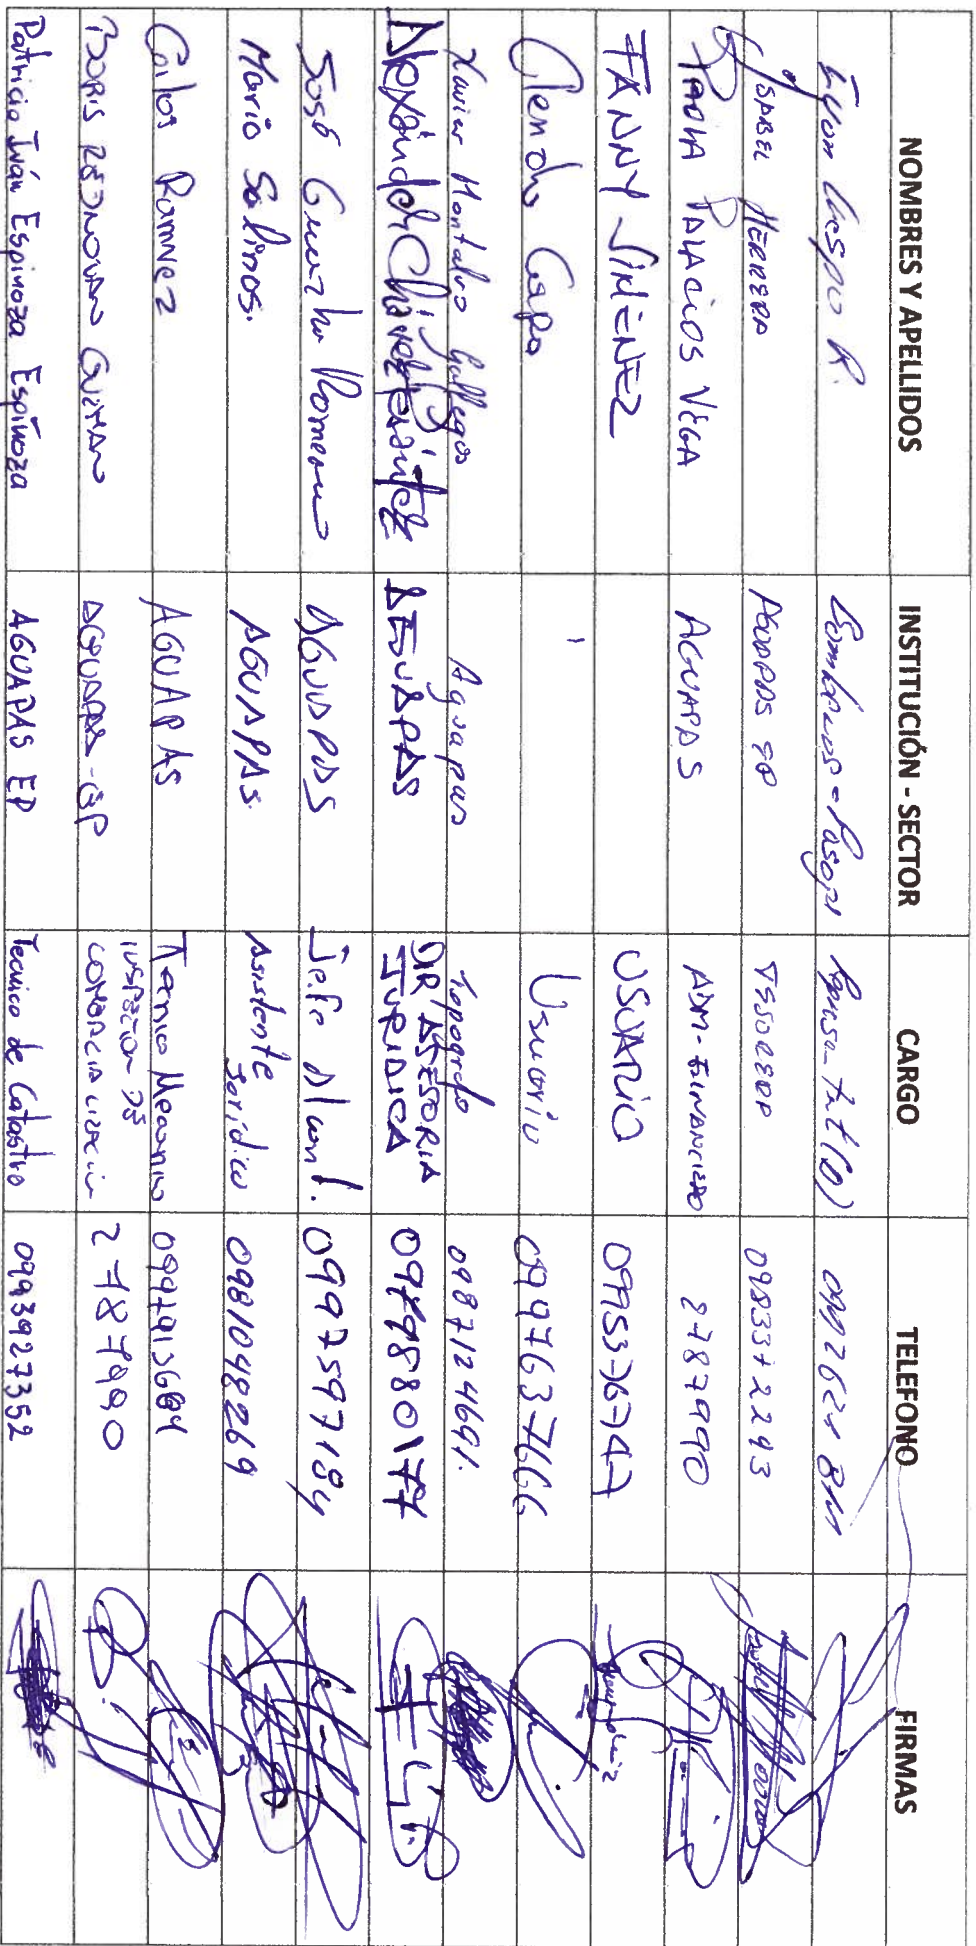 NOMBRES Y APELLIDOS INSTITUCIÓN - SECTOR CARGO TELEFONO FIRMAS
Crespo R.
Isabel Herrera Tesorera 0983372293
Paola Palacios Vega AGUAPAS ADM-FINANCIERO 2787990
FANNY JIMÉNEZ USUARIO 0995376747
Glenda Capa Usuario 0997637666
Xavier Montalvo Gallegos Aguapas Topografo 0987124691.
AGUAPAS DIR/ASESORIA JURIDICA 0979880174
José Romero AGUAPAS Jefe Alcant. 0997597184
Mario Salinas. AGUAPAS. Asistente Jurídico 0981048269
Carlos Ramirez AGUAPAS Tecnico Mecanico
Boris Guzman AGUAPAS-EP INSPECTOR DE COMERCIALIZACION 2787990
Patricio Iván Espinoza Espinoza AGUAPAS EP Tecnico de Catastro 0993927352